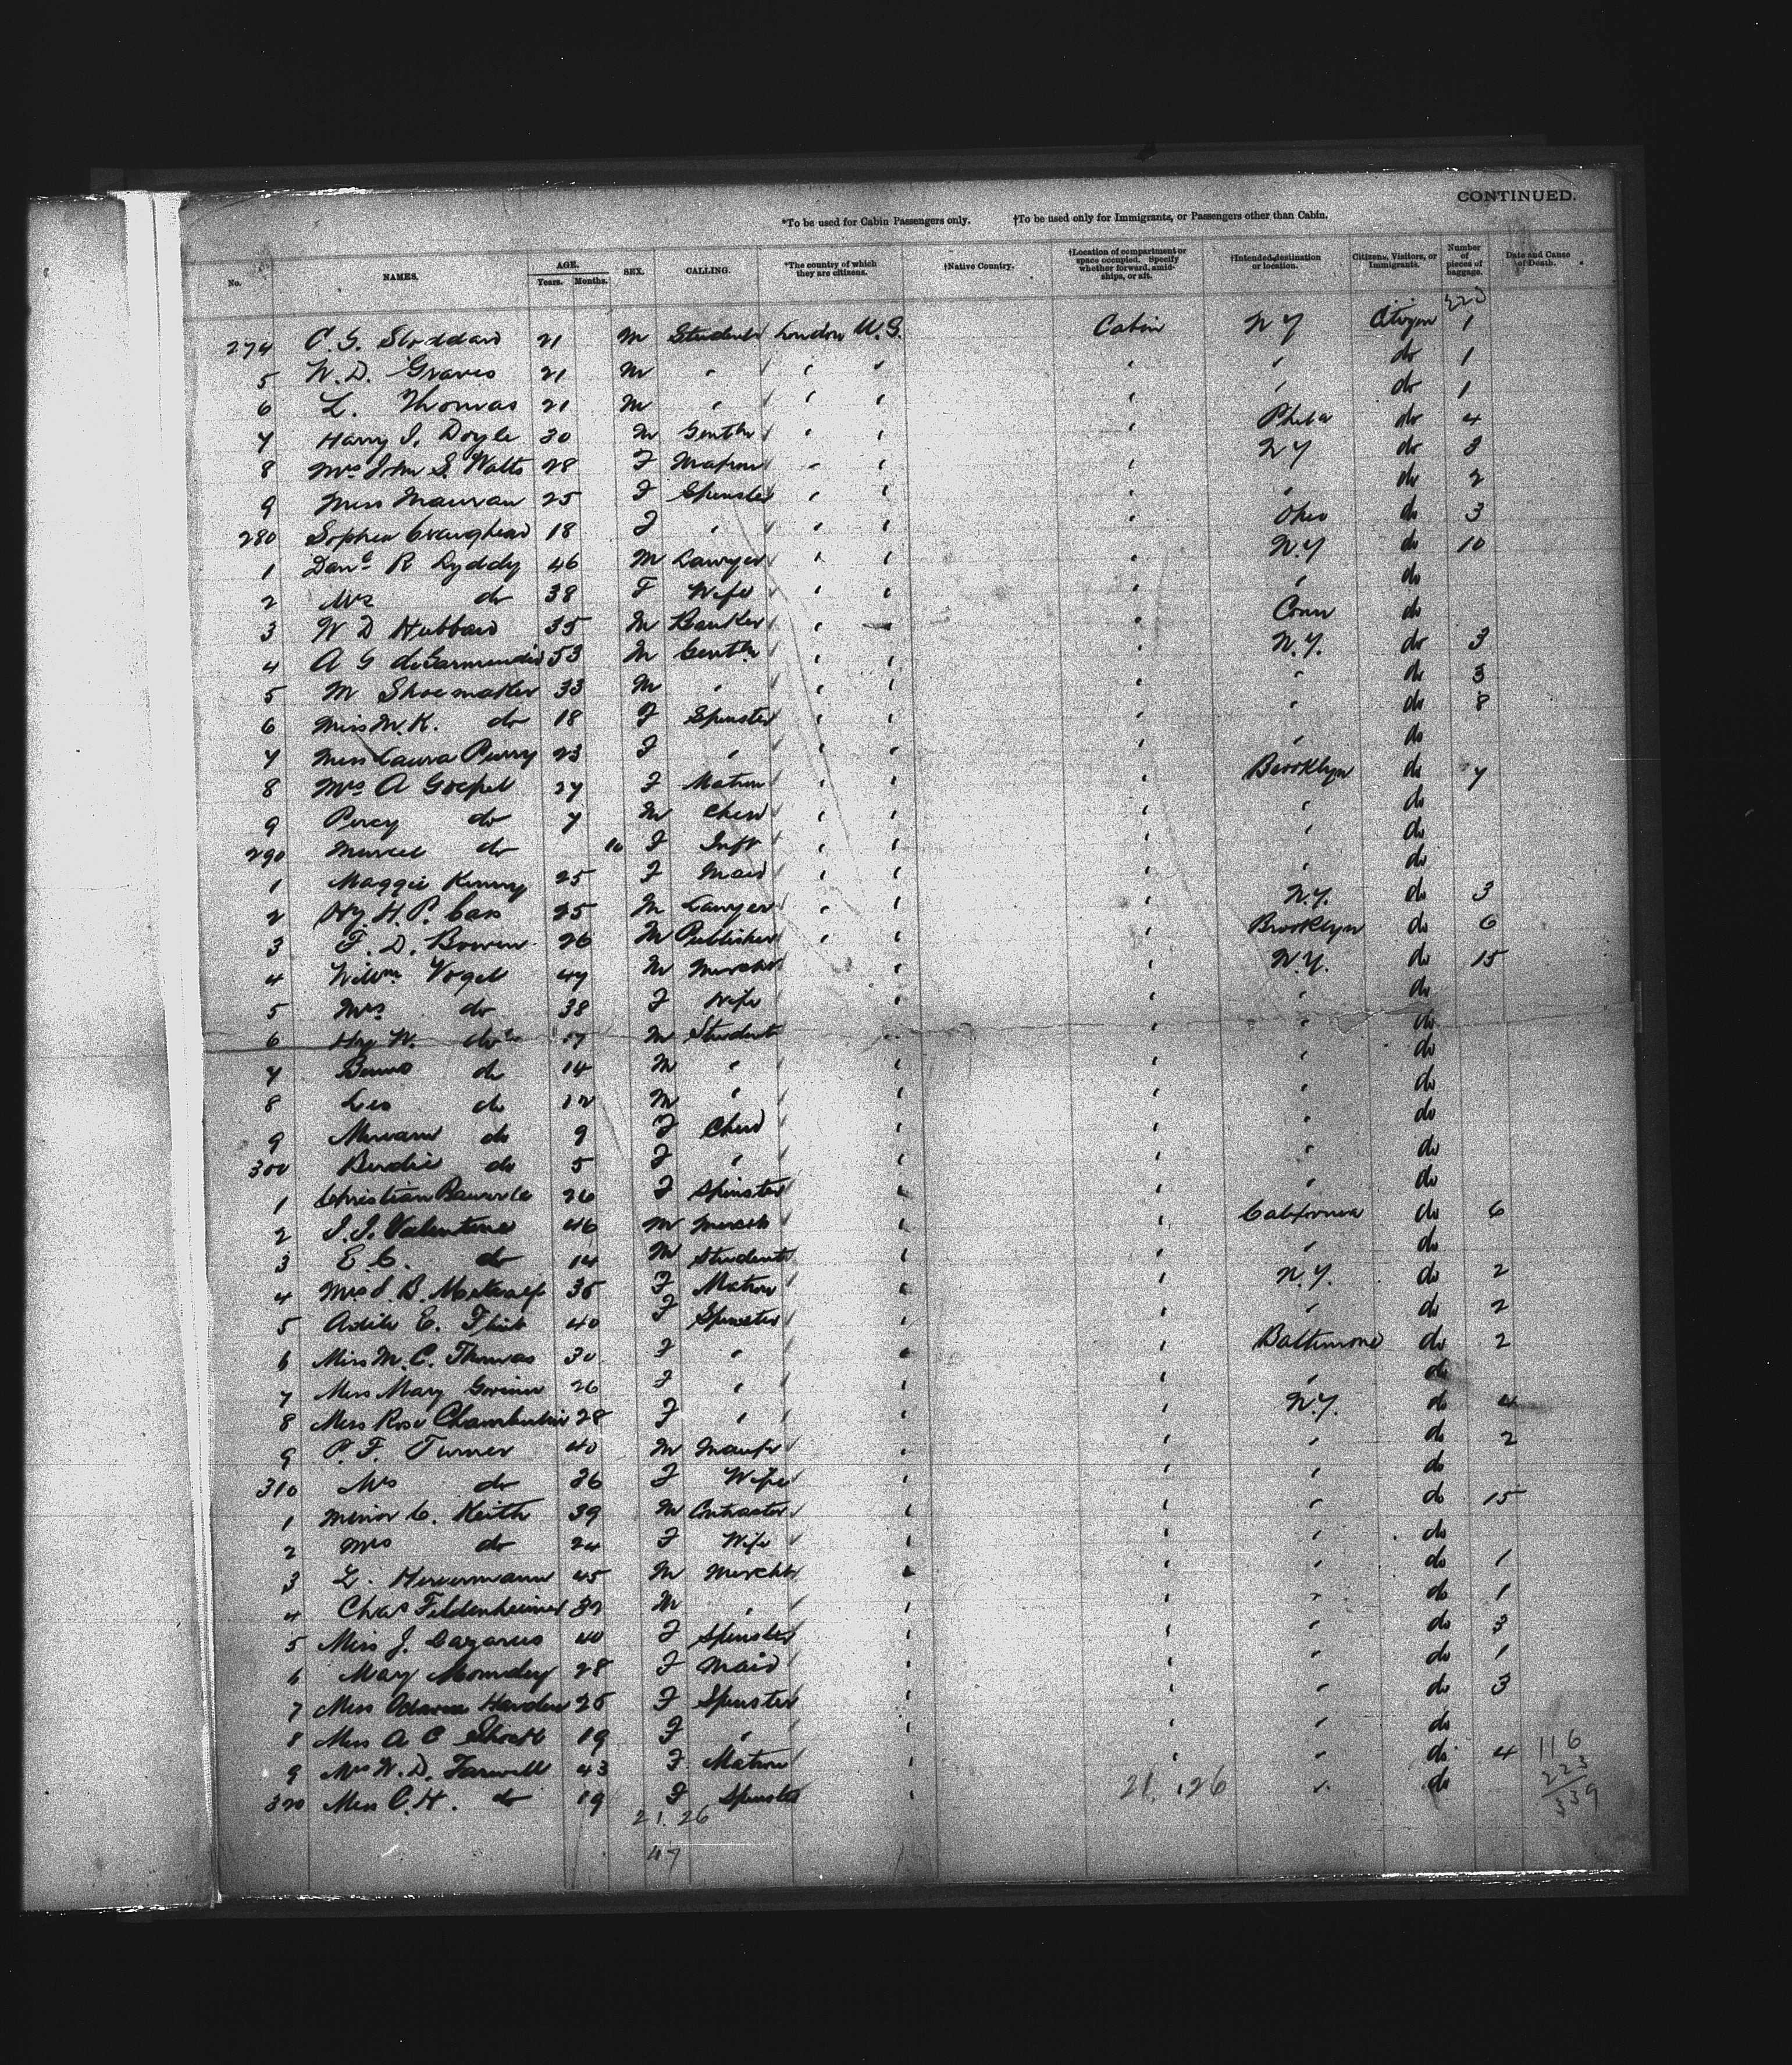 CONTINUED.
*To be used for Cabin Passengers only. †To be used only for Immigrants, or Passengers other than Cabin.
No. NAMES. AGE. Years. Months. SEX. CALLING. *The country of which they are citizens. †Native Country. †Location of compartment or space occupied. Specify whether forward, amidships, or aft. †Intended destination or location. Citizens, Visitors, or Immigrants. Number of pieces of baggage. Date and Cause of Death.
223
274 C. G. Stoddard 21 M Student London U.S. Cabin N Y Citizen 1
5 W. D. Graves 21 M " " " " " do 1
6 L. Thomas 21 M " " " " " do 1
7 Harry J. Doyle 30 M Gentln " " " Phila do 4
8 Mrs John S. Watts 28 F Matron " " " N Y do 3
9 Miss Mauran 25 F Spinster " " " " do 2
280 Sophia Craighead 18 F " " " " Ohio do 3
1 Danl R Lyddy 46 M Lawyer " " " N.Y do 10
2 Mrs do 38 F Wife " " " " do
3 W D Hubbard 35 M Banker " " " Conn do
4 A G deGarmendia 53 M Gentln " " " N.Y. do 3
5 M Shoemaker 33 M " " " " " do 3
6 Miss M. K. do 18 F Spinster " " " " do 8
7 Miss Laura Perry 23 F " " " " " do
8 Mrs A Goepel 27 F Matron " " " Brooklyn do 7
9 Percy do 7 M Child " " " " do
290 do 10 F Inft " " " " do
1 Maggie Kenny 25 F Maid " " " " do
2 Hy. H. P. 25 M Lawyer " " " N.Y. do 3
3 F. D. Bowen 26 M Publisher " " " Brooklyn do 6
4 Willm Vogel 47 M Mercht " " N.Y. do 15
5 Mrs do 38 F Wife " " " do
6 Hy W. do 17 M Student " " " do
7 do 14 M " " " " do
8 Leo do 12 M " " " " do
9 do 9 F Child " " " do
300 Birdie do 5 F " " " " do
1 Christian 26 F Spinster " " " do
2 J. J. Valentine 46 M Merch " " California do 6
3 E. C. do 14 M Student " " " do
4 Mrs J. B. Metcalf 35 F Matron " " N.Y. do 2
5 Adile E. Flint 40 F Spinster " " " do 2
6 Miss M. C. Thomas 30 F " " " Baltimore do 2
7 Miss Mary 26 F " " " " do
8 Miss Rose Chamberlain 28 F " " " N.Y. do 4
9 P. F. Turner 40 M Manufr " " " do 2
310 Mrs do 36 F Wife " " " do
1 Minor C. Keith 39 M Contractor " " " do 15
2 Mrs do 24 F Wife " " " do
3 L. 45 M Mercht " " " do 1
4 Chas Feldenheimer 32 M " " " " do 1
5 Miss J. Lazarus 40 F Spinster " " " do 3
6 Mary 28 F Maid " " " do 1
7 Miss Harden 25 F Spinster " " " do 3
8 Miss A C 19 F " " " " do
9 Mrs W. D. Farwell 43 F Matron " " " do 4
320 Miss C. H. do 19 F Spinster " 21. 26 " do
116
223
339
21. 26
47